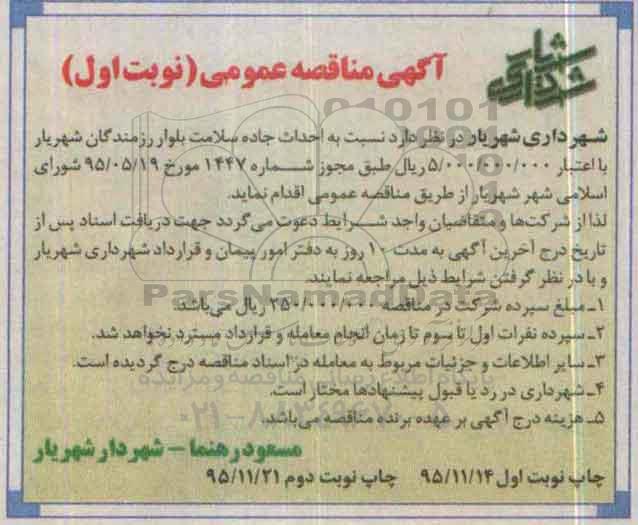 شهرداری شهریار
آگهی مناقصه عمومی (نوبت اول)
شهرداری شهریار در نظر دارد نسبت به احداث جاده سلامت بلوار رزمندگان شهریار
با اعتبار ۵/۰۰۰/۰۰۰/۰۰۰ ریال طبق مجوز شماره ۱۴۴۷ مورخ ۹۵/۰۵/۱۹ شورای
اسلامی شهر شهریار از طریق مناقصه عمومی اقدام نماید.
لذا از شرکت‌ها و متقاضیان واجد شرایط دعوت می‌گردد جهت دریافت اسناد پس از
تاریخ درج آخرین آگهی به مدت ۱۰ روز به دفتر امور پیمان و قرارداد شهرداری شهریار
و با در نظر گرفتن شرایط ذیل مراجعه نمایند.
۱ـ مبلغ سپرده شرکت در مناقصه ۲۵۰/۰۰۰/۰۰۰ ریال می‌باشد.
۲ـ سپرده نفرات اول تا سوم تا زمان انجام معامله و قرارداد مسترد نخواهد شد.
۳ـ سایر اطلاعات و جزئیات مربوط به معامله در اسناد مناقصه درج گردیده است.
۴ـ شهرداری در رد یا قبول پیشنهادها مختار است.
۵ـ هزینه درج آگهی بر عهده برنده مناقصه می‌باشد.
مسعود رهنما – شهردار شهریار
چاپ نوبت اول ۹۵/۱۱/۱۴ چاپ نوبت دوم ۹۵/۱۱/۲۱
ParsNamadData